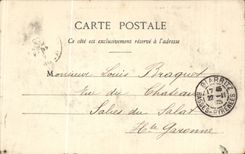 CARTE POSTALE
Ce côté est exclusivement réservé à l'adresse
Monsieur Louis Braquet
rue du Chateau
Salies du Salat
Hte Garonne
BIARRITZ
BASSES-PYRENEES